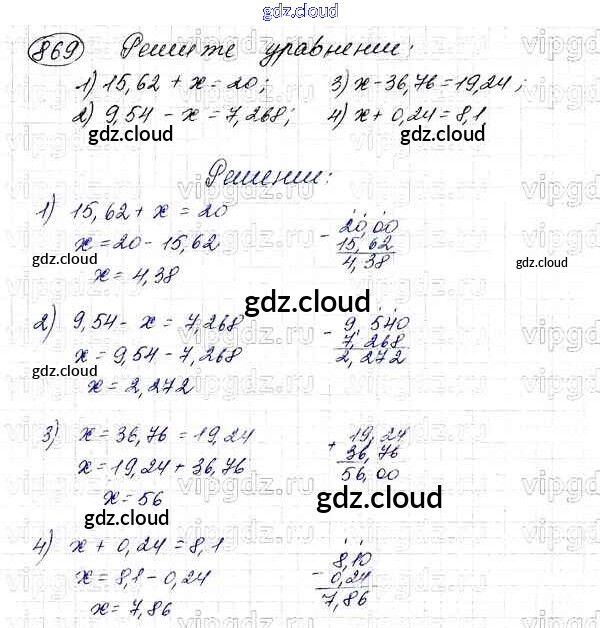 gdz.cloud
869 Решите уравнении:
1) 15,62 + x = 20; 3) x - 36,76 = 19,24;
2) 9,54 - x = 7,268; 4) x + 0,24 = 8,1
gdz.cloud gdz.cloud
Решении:
1) 15,62 + x = 20
x = 20 - 15,62
x = 4,38
- 20,00
15,62
4,38
gdz.cloud gdz.cloud
gdz.cloud
2) 9,54 - x = 7,268
x = 9,54 - 7,268
x = 2,272
- 9,540
7,268
2,272
gdz.cloud gdz.cloud
3) x = 36,76 = 19,24
x = 19,24 + 36,76
x = 56
+ 19,24
36,76
56,00
gdz.cloud gdz.cloud
4) x + 0,24 = 8,1
x = 8,1 - 0,24
x = 7,86
8,10
- 0,24
7,86
gdz.cloud gdz.cloud
gdz.cloud